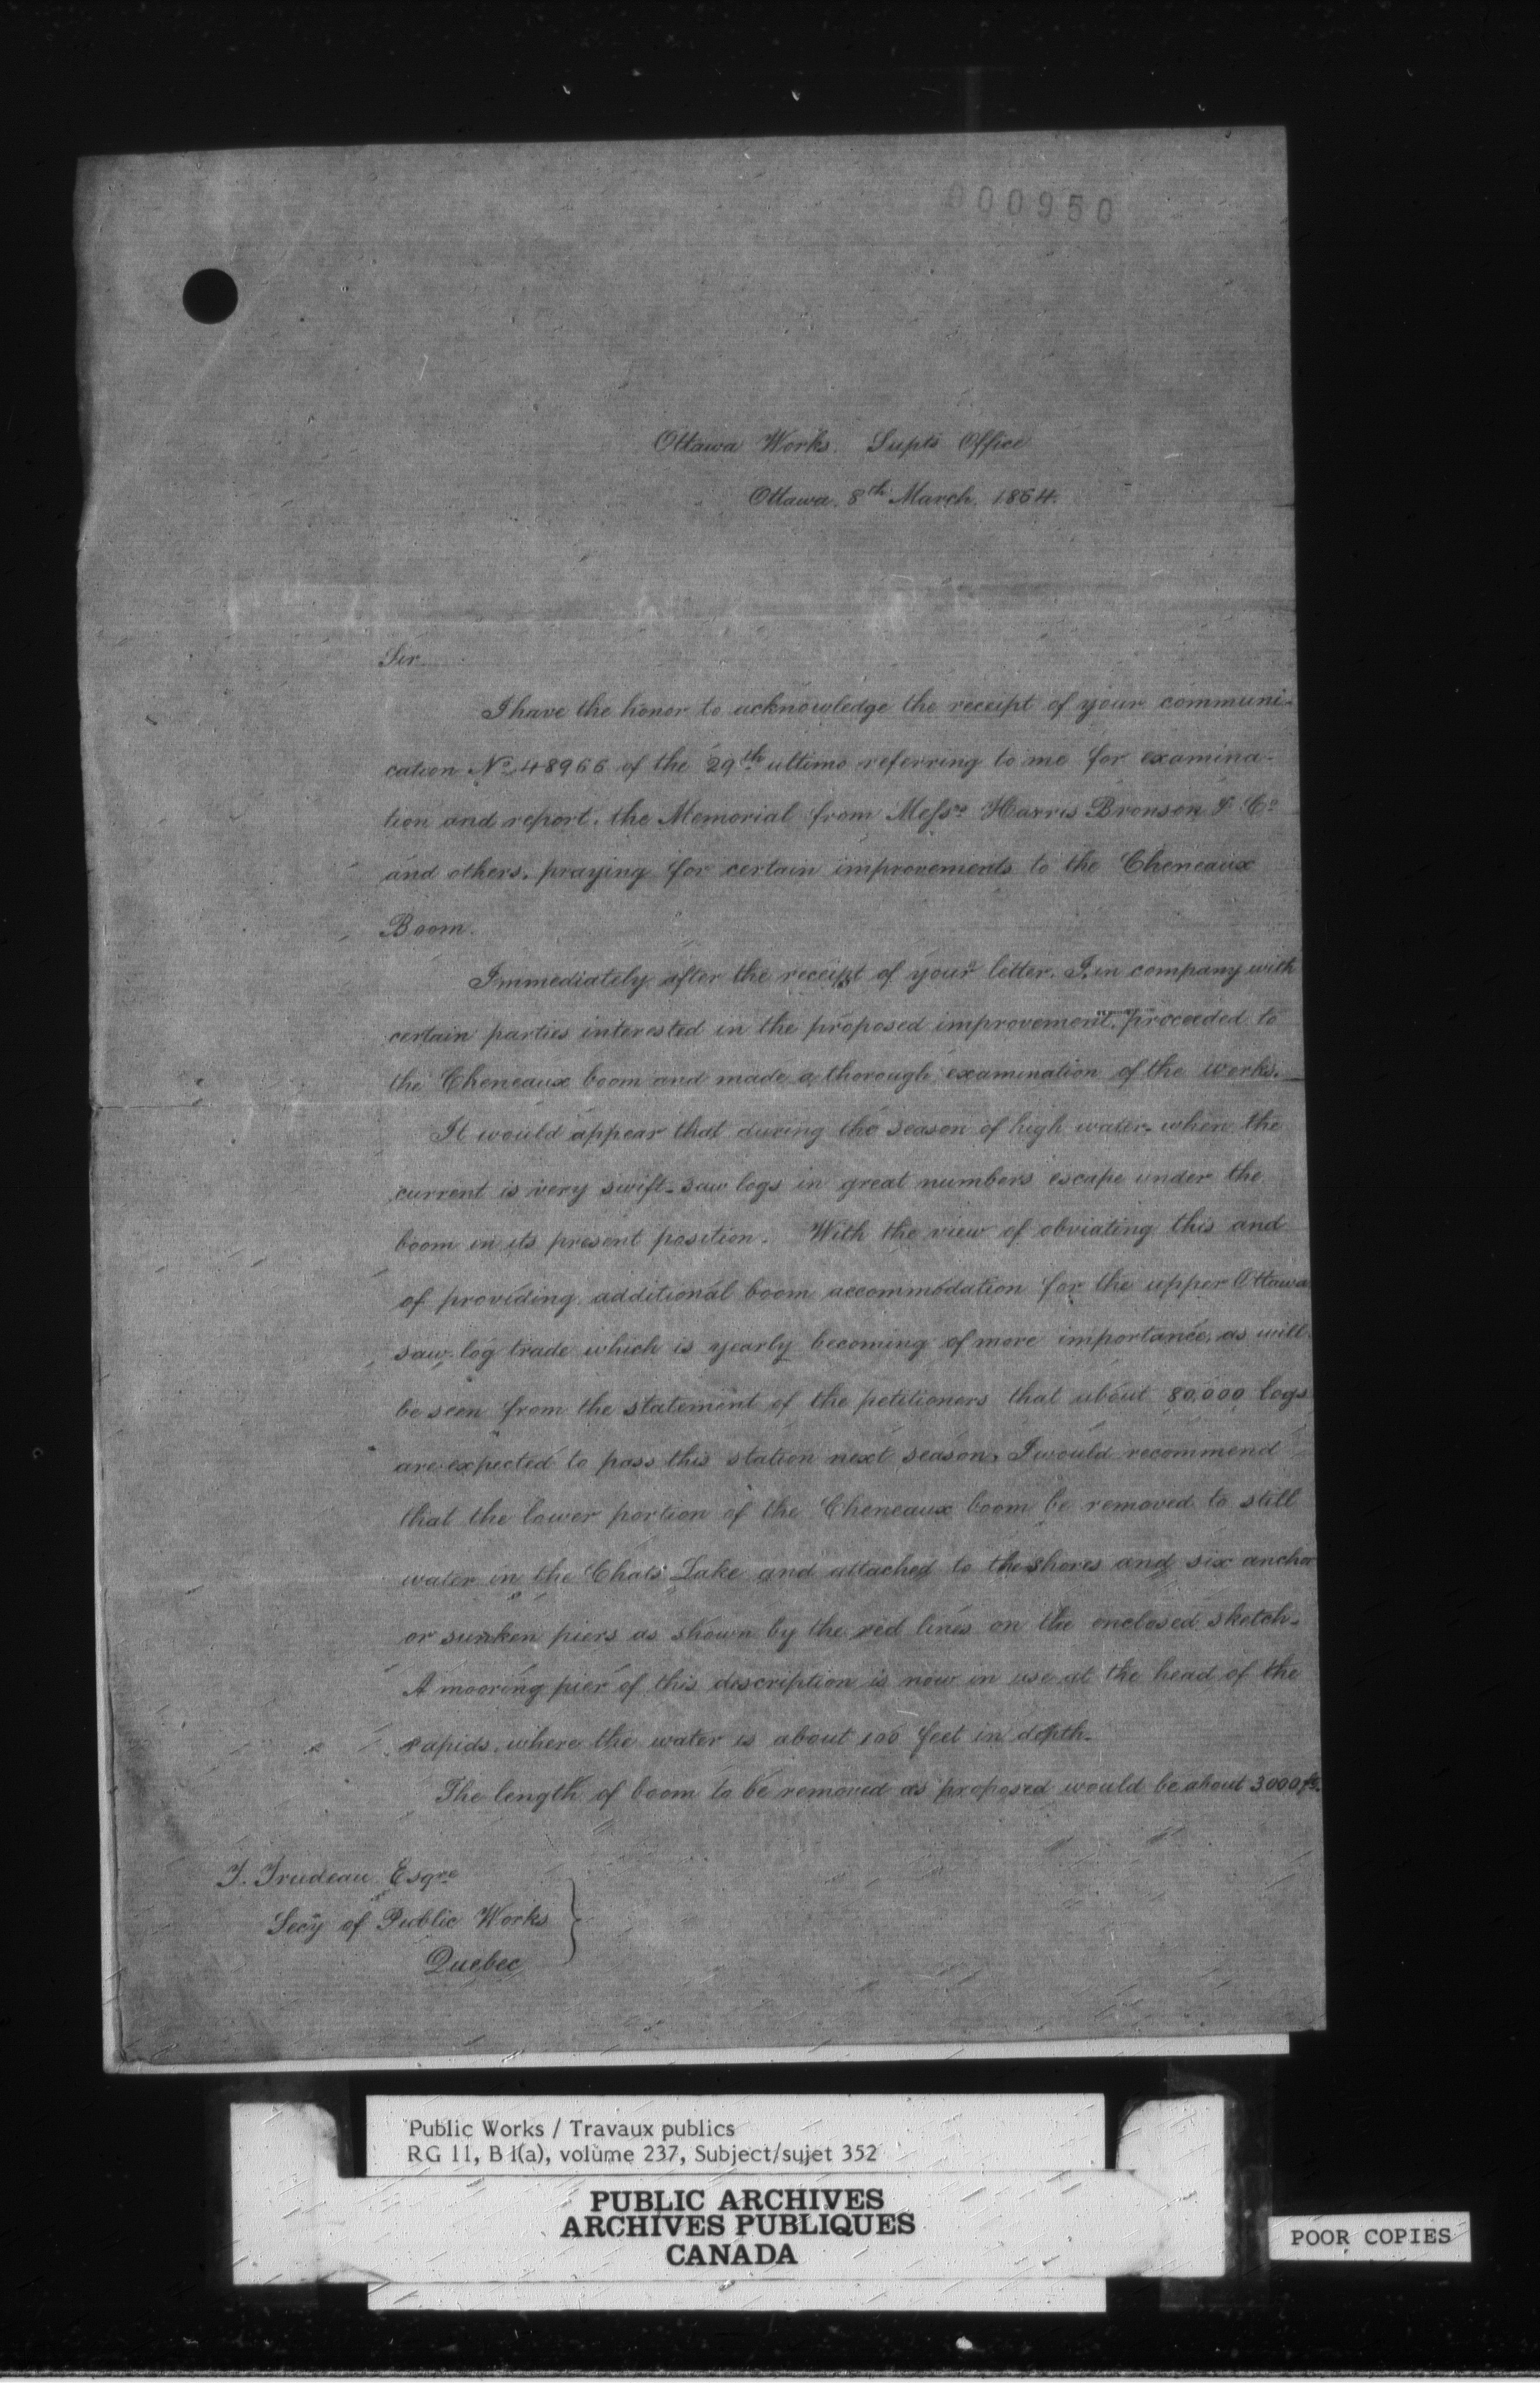 000950
Ottawa Works. Supts Office
Ottawa. 8th March. 1864.
Sir
I have the honor to acknowledge the receipt of your communi-
cation No 48966 of the 29th ultimo referring to me for examina-
tion and report. the Memorial from Messrs Harris Bronson & Co
and others. praying for certain improvements to the Cheneaux
Boom.
Immediately after the receipt of your letter. I, in company with
certain parties interested in the proposed improvement. proceeded to
the Cheneaux boom and made a thorough examination of the works.
It would appear that during the season of high water, when the
current is very swift - saw logs in great numbers escape under the
boom in its present position. With the view of obviating this and
of providing additional boom accommodation for the upper Ottawa
saw-log trade which is yearly becoming of more importance, as will
be seen from the statement of the petitioners that about 80,000 logs
are expected to pass this station next season, I would recommend
that the lower portion of the Cheneaux boom be removed to still
water in the Chats Lake and attached to the shores and six anchor
or sunken piers as shown by the red lines on the enclosed sketch.
A mooring pier of this description is now in use at the head of the
rapids. where the water is about 100 feet in depth.
The length of boom to be removed as proposed would be about 3000 ft.
T. Trudeau Esqre
Secy of Public Works
Quebec
Public Works / Travaux publics
RG 11, B 1(a), volume 237, Subject/sujet 352
PUBLIC ARCHIVES
ARCHIVES PUBLIQUES
CANADA
POOR COPIES